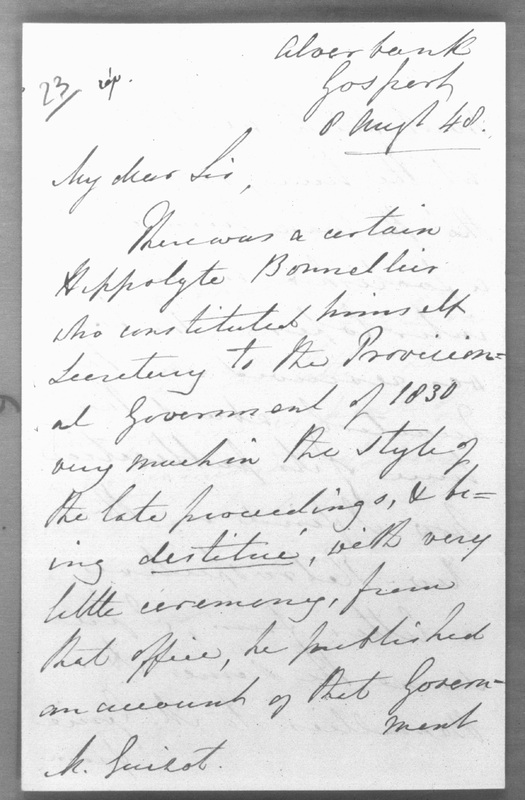 Alverbank
Gosport
8 Augt 48.
23/ rép.
My dear Sir,
There was a certain
Hippolyte Bonnellier
who constituted himself
Secretary to the Provision=
al Government of 1830
very much in the style of
the late proceedings, & be=
ing destitué, with very
little ceremony, from
that office, he published
an account of that Govern-
ment
M. Guizot.